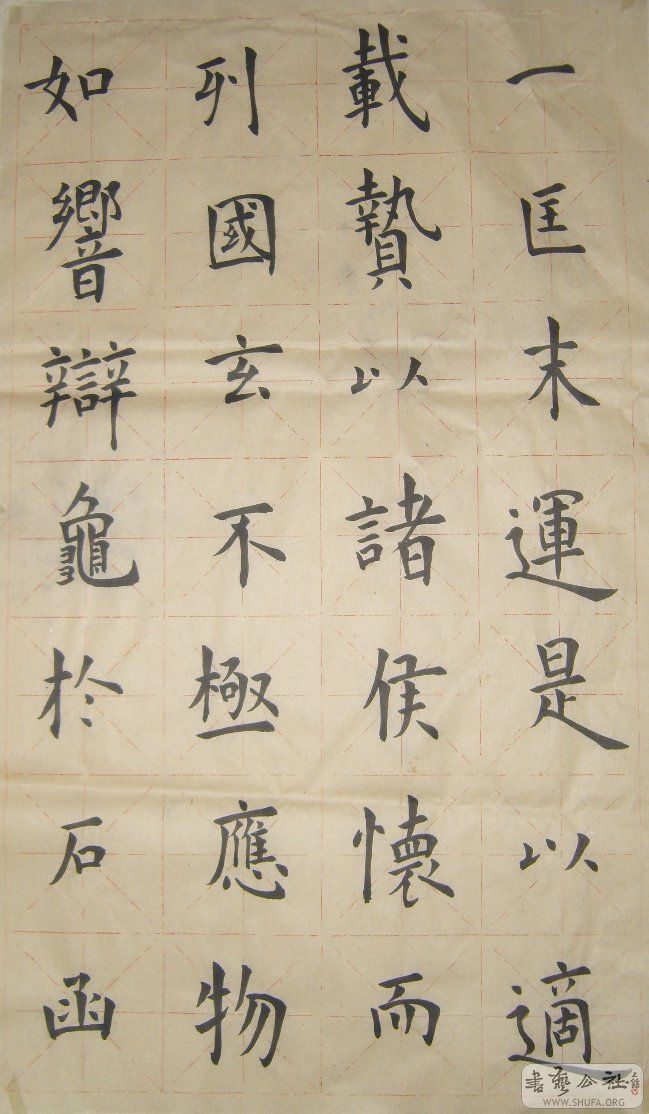 一匡末運是以適
載贄以諸侯懷而
列國玄不極應物
如響辯龜於石函
書藝公社
WWW.SHUFA.ORG